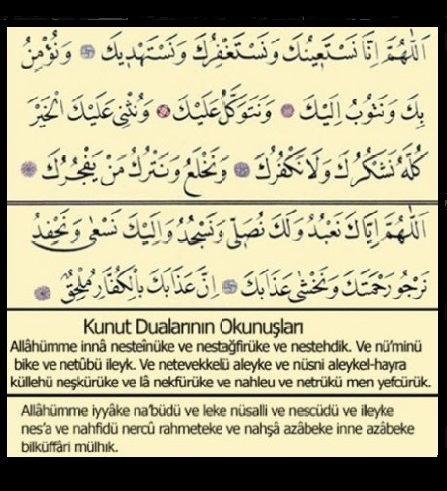 اَللّٰهُمَّ اِنَّا نَسْتَعٖينُكَ وَنَسْتَغْفِرُكَ وَنَسْتَهْدٖيكَ وَنُؤْمِنُ
بِكَ وَنَتُوبُ اِلَيْكَ وَنَتَوَكَّلُ عَلَيْكَ وَنُثْنٖى عَلَيْكَ الْخَيْرَ
كُلَّهُ نَشْكُرُكَ وَلَا نَكْفُرُكَ وَنَخْلَعُ وَنَتْرُكُ مَنْ يَفْجُرُكَ
اَللّٰهُمَّ اِيَّاكَ نَعْبُدُ وَلَكَ نُصَلّٖى وَنَسْجُدُ وَاِلَيْكَ نَسْعٰى وَنَحْفِدُ
نَرْجُو رَحْمَتَكَ وَنَخْشٰى عَذَابَكَ اِنَّ عَذَابَكَ بِالْكُفَّارِ مُلْحِقٌ
Kunut Dualarının Okunuşları
Allâhümme innâ nesteînüke ve nestağfirüke ve nestehdik. Ve nü'minü
bike ve netûbü ileyk. Ve netevekkelü aleyke ve nüsni aleykel-hayra
küllehü neşkürüke ve lâ nekfürüke ve nahleu ve netrükü men yefcürük.
Allâhümme iyyâke na'büdü ve leke nüsalli ve nescüdü ve ileyke
nes'a ve nahfidü nercû rahmeteke ve nahşâ azâbeke inne azâbeke
bilküffâri mülhık.